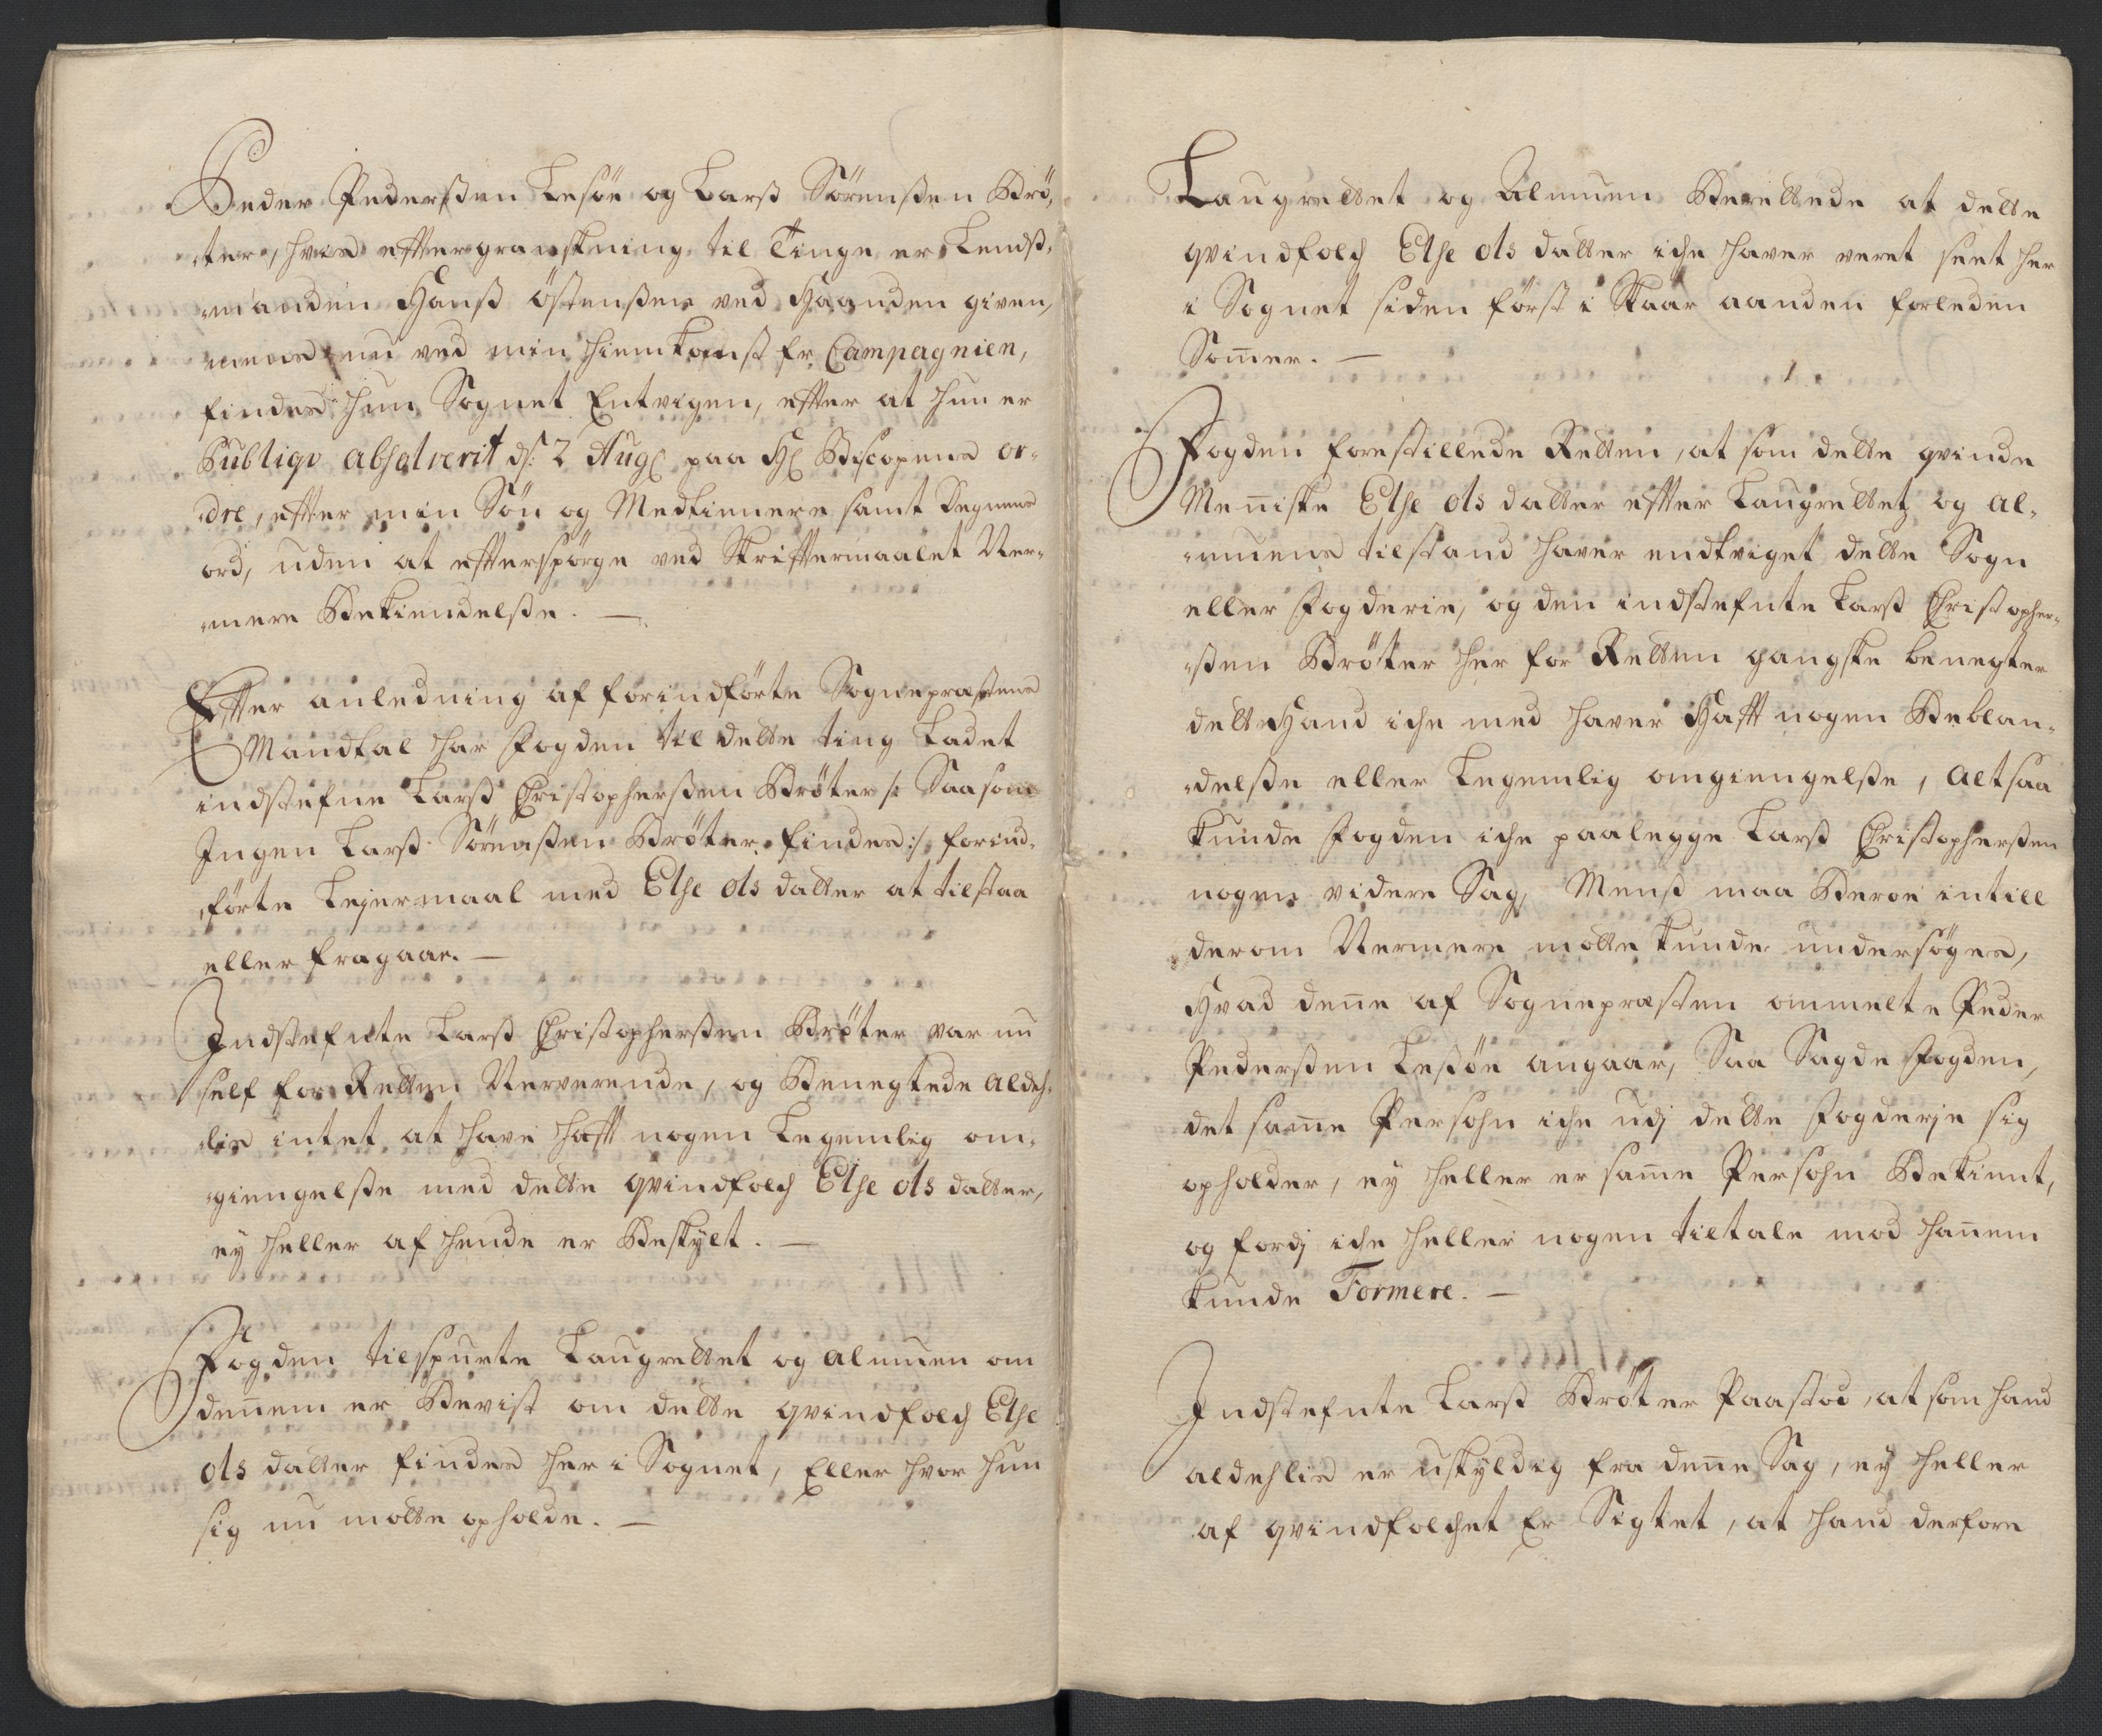 Peder Pederßen Lesöe og Larß Sörenßen Brö,
ter, hvis effter granskning til Tinge er Lendß,
manden Hanß Östenßen ved Haanden given,
mens nu ved min Hiemkomst fr Campagnien,
findes hun Sognet Entvigen, effter at hun er
Publiqv absolverit dj: 2 Aug paa H Biscopens or-
dre, effter min Sön og Medtienere samt Degnens
ord, uden at effterspörge ved Skrifftermaalet Ner-
mere Bekiendelße. —
Effter anledning af forindförte Sognepræstens
Mandtal har Fogden til dette ting Ladet
indstefne Larß Christopherßen Bröter /: Saasom
Ingen Larß Sörenßen Bröter findes :/ forind,
förte Lejermaal med Else ols datter at tilstaa
eller fragaar. —
Indstefnte Larß Christopherßen Bröter var nu
self for Retten Nerverende, og Benegtede aldeh,
lis intet at have hafft nogen Legemlig om,
giengelße med dette qvindfolch Else ols datter,
ey heller af hende er Beskylt. —
Fogden tilspurte Laugrettet og almuen om
dennem er Bevist om dette qvindfolch Else
ols datter findes her i Sognet, Eller hvor hun
sig nu motte opholde. —
Laugrettet og Almuen Berettede at dette
qvindfolch Else ols datter iche haver veret seet her
i Sognet siden först i Skaar aanden forleden
Som̄er. —
Fogden forestillede Retten, at som dette qvinde
Men̄iske Else ols datter effter Laugrettetz og al,
muens tilstand haver endtviget dette Sogn
eller Fogderie, og den indstefnte Larß Christopher,
ßen Bröter her for Retten gangske benegter
dette Hand iche med haver Hafft nogen Beblan,
delße eller Legemlig omgiengelße, altsaa
kunde Fogden iche paalegge Larß Christopherßen
nogen videre Sag, Menß maa Beroe intill
derom Nermere motte kunde undersöges,
Hvad den̄e af Sognepræsten ommelte Peder
Pederßen Leßöe angaar, Saa Sagde Fogden,
det sam̄e Persohn iche udj dette Fogderje sig
opholder, ey heller er sam̄e Persohn Bekient,
og fordj iche heller nogen tiltale mod han̄em
kunde Formere. —
Indstefnte Larß Bröter Paastod, at som hand
aldehlis er uskyldig fra den̄e Sag, ey heller
af qvindfolchet Er Sigtet, at hand derfore